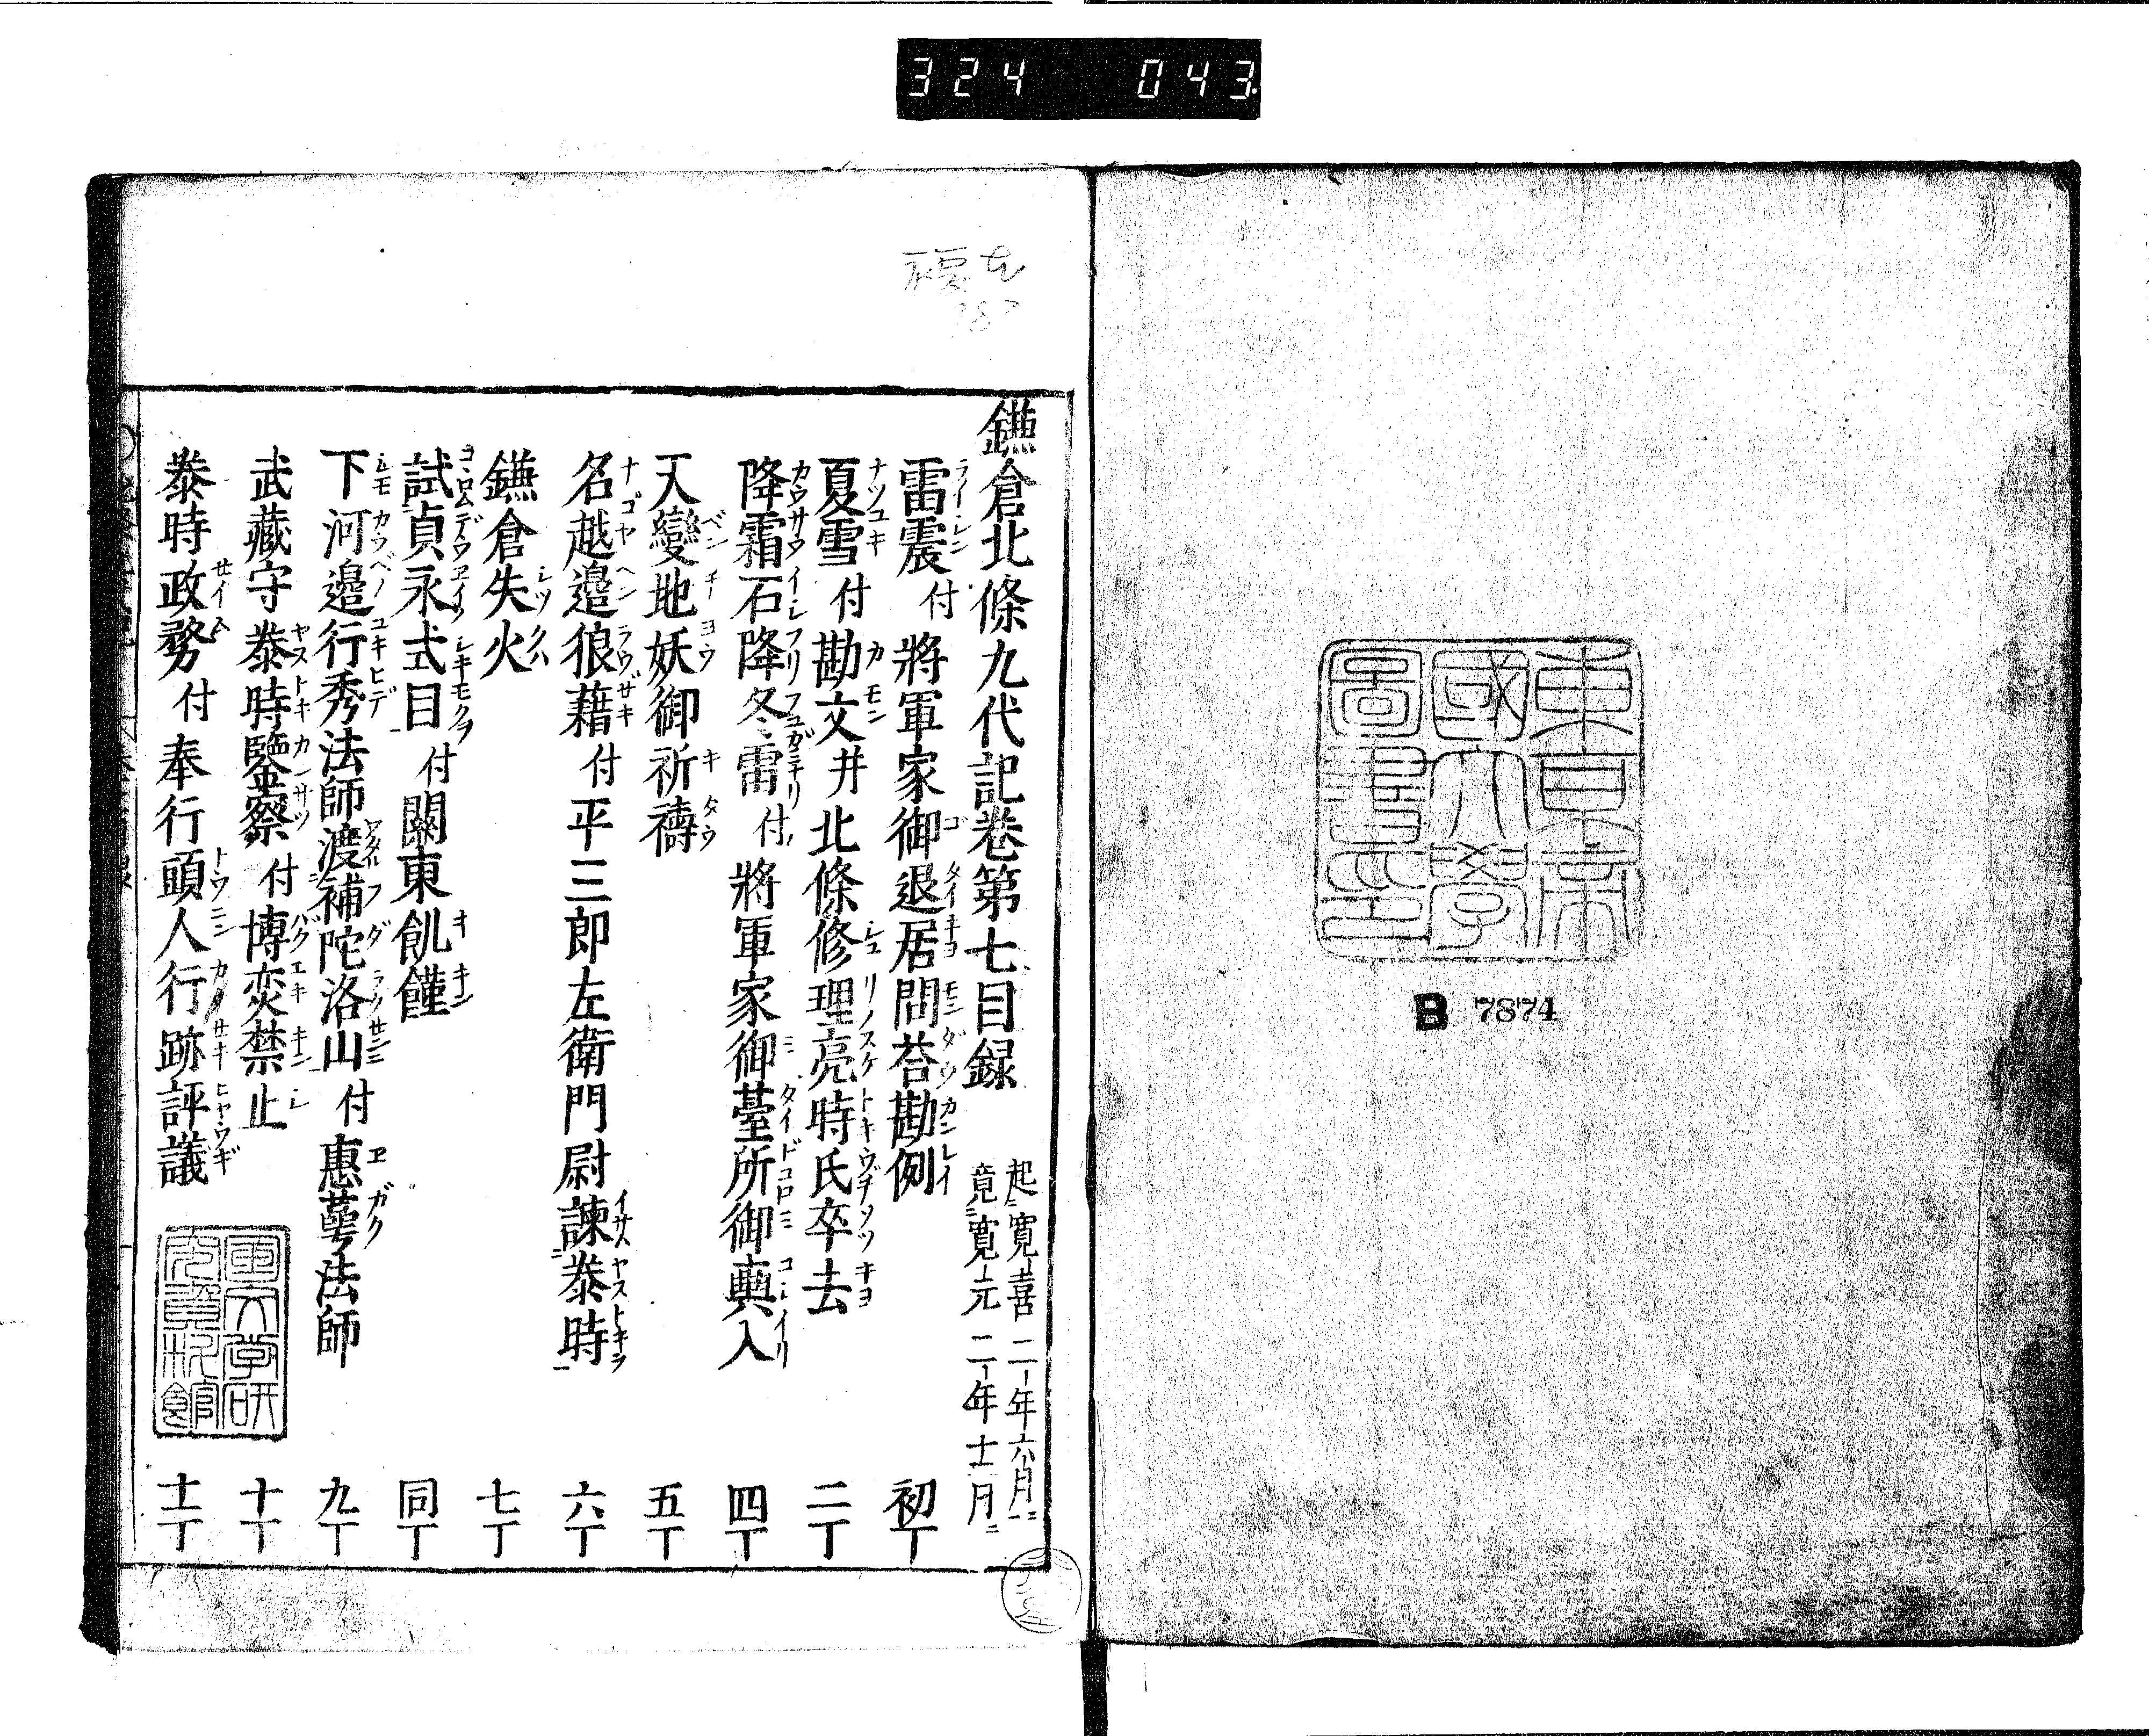 324 043
東京帝
國大學
圖書印
B 7874
鎌倉北條九代記巻第七目録
起寛喜二年六月
竟寛元二年十二月
雷震付將軍家御退居問荅勘例 初丁
夏雪付勘文并北條修理亮時氏卒去 二丁
降霜石降冬雷付將軍家御臺所御輿入 四丁
天變地妖御祈禱 五丁
名越邉狼藉付平三郎左衛門尉諫泰時 六丁
鎌倉失火 七丁
試貞永式目付關東飢饉 同丁
下河邉行秀法師渡補陀洛山付惠萼法師 九丁
武藏守泰時鑒察付博奕禁止 十丁
泰時政務付奉行頭人行跡評議 十一丁
国文学研
究資料館